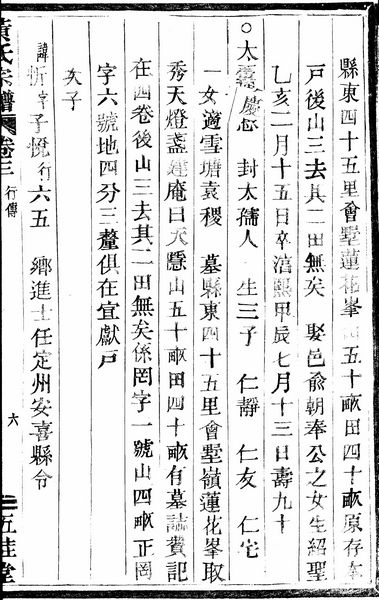 縣東四十五里會墅蓮花峯五十畝田四十畝原存本
戸後山三去其二田無矣 娶邑俞朝奉公之女生紹聖
乙亥二月十五日卒淳熙甲辰七月十三日壽九十
○太 封太孺人 生三子 仁靜 仁友 仁宅
一女適雪塘袁稷 墓縣東四十五里會墅嶺蓮花峯取
秀天燈盞建庵曰天隱山五十畝田四十畝有墓誌費記
在四卷後山三去其二田無矣係岡字一號山四畝正岡
字六號地四分三釐俱在宜獻戸
次子
諱忻字子悅行六五 鄉進士任定州安喜縣令
黃氏宗譜 卷三 行傳 六 五桂堂